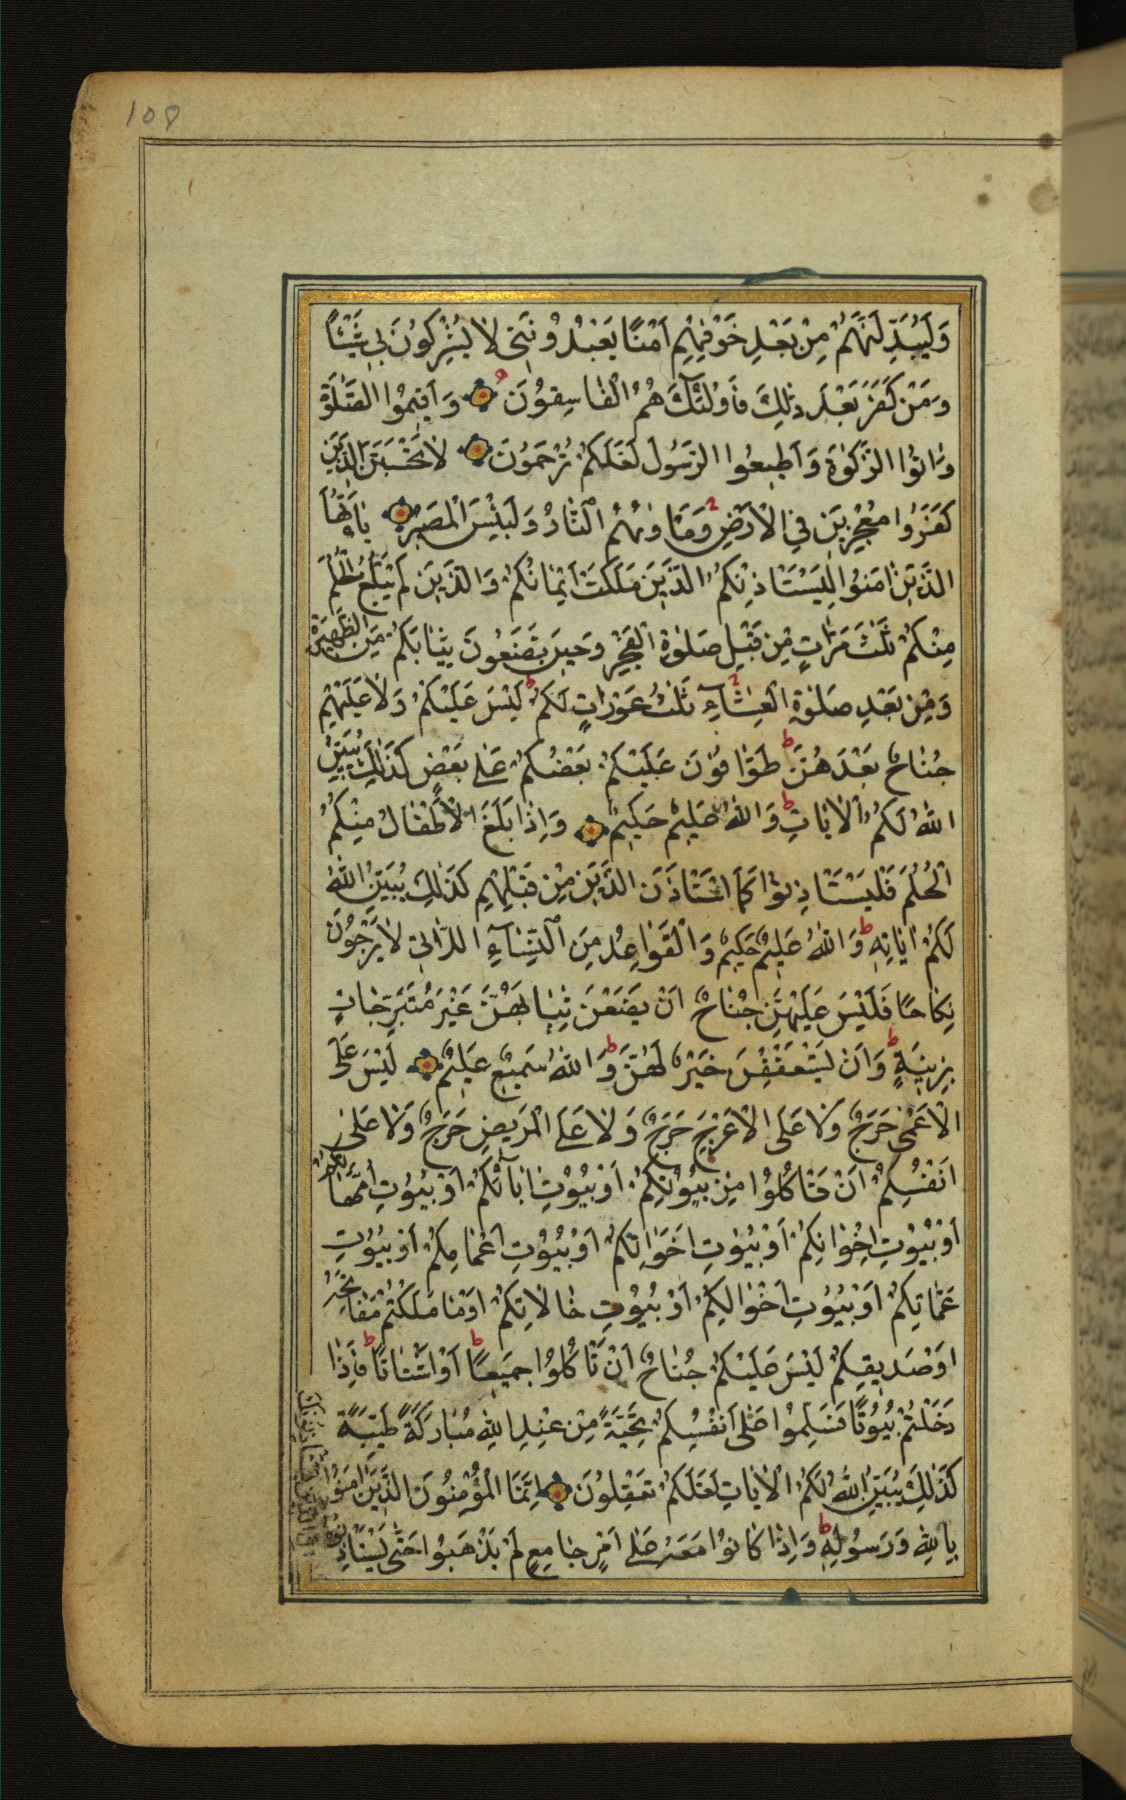 108
وَلَيُبَدِّلَنَّهُمْ مِنْ بَعْدِ خَوْفِهِمْ اَمْنًا يَعْبُدُونَنِى لَا يُشْرِكُونَ بِى شَيْئًا
وَمَنْ كَفَرَ بَعْدَ ذٰلِكَ فَاُولٰئِكَ هُمُ الْفَاسِقُونَ وَاَقِيمُوا الصَّلٰوةَ
وَاٰتُوا الزَّكٰوةَ وَاَطِيعُوا الرَّسُولَ لَعَلَّكُمْ تُرْحَمُونَ لَا تَحْسَبَنَّ الَّذِينَ
كَفَرُوا مُعْجِزِينَ فِى الْاَرْضِ وَمَاْوٰيهُمُ النَّارُ وَلَبِئْسَ الْمَصِيرُ يَا اَيُّهَا
الَّذِينَ اٰمَنُوا لِيَسْتَاْذِنْكُمُ الَّذِينَ مَلَكَتْ اَيْمَانُكُمْ وَالَّذِينَ لَمْ يَبْلُغُوا الْحُلُمَ
مِنْكُمْ ثَلٰثَ مَرَّاتٍ مِنْ قَبْلِ صَلٰوةِ الْفَجْرِ وَحِينَ تَضَعُونَ ثِيَابَكُمْ مِنَ الظَّهِيرَةِ
وَمِنْ بَعْدِ صَلٰوةِ الْعِشَآءِ ثَلٰثُ عَوْرَاتٍ لَكُمْ لَيْسَ عَلَيْكُمْ وَلَا عَلَيْهِمْ
جُنَاحٌ بَعْدَهُنَّ طَوَّافُونَ عَلَيْكُمْ بَعْضُكُمْ عَلٰى بَعْضٍ كَذٰلِكَ يُبَيِّنُ
اللهُ لَكُمُ الْاٰيَاتِ وَاللهُ عَلِيمٌ حَكِيمٌ وَاِذَا بَلَغَ الْاَطْفَالُ مِنْكُمُ
الْحُلُمَ فَلْيَسْتَاْذِنُوا كَمَا اسْتَاْذَنَ الَّذِينَ مِنْ قَبْلِهِمْ كَذٰلِكَ يُبَيِّنُ اللهُ
لَكُمْ اٰيَاتِهِ وَاللهُ عَلِيمٌ حَكِيمٌ وَالْقَوَاعِدُ مِنَ النِّسَآءِ الّٰاتِى لَا يَرْجُونَ
نِكَاحًا فَلَيْسَ عَلَيْهِنَّ جُنَاحٌ اَنْ يَضَعْنَ ثِيَابَهُنَّ غَيْرَ مُتَبَرِّجَاتٍ
بِزِينَةٍ وَاَنْ يَسْتَعْفِفْنَ خَيْرٌ لَهُنَّ وَاللهُ سَمِيعٌ عَلِيمٌ لَيْسَ عَلَى
الْاَعْمٰى حَرَجٌ وَلَا عَلَى الْاَعْرَجِ حَرَجٌ وَلَا عَلَى الْمَرِيضِ حَرَجٌ وَلَا عَلٰى
اَنْفُسِكُمْ اَنْ تَاْكُلُوا مِنْ بُيُوتِكُمْ اَوْ بُيُوتِ اٰبَآئِكُمْ اَوْ بُيُوتِ اُمَّهَاتِكُمْ
اَوْ بُيُوتِ اِخْوَانِكُمْ اَوْ بُيُوتِ اَخَوَاتِكُمْ اَوْ بُيُوتِ اَعْمَامِكُمْ اَوْ بُيُوتِ
عَمَّاتِكُمْ اَوْ بُيُوتِ اَخْوَالِكُمْ اَوْ بُيُوتِ خَالَاتِكُمْ اَوْ مَا مَلَكْتُمْ مَفَاتِحَهُ
اَوْ صَدِيقِكُمْ لَيْسَ عَلَيْكُمْ جُنَاحٌ اَنْ تَاْكُلُوا جَمِيعًا اَوْ اَشْتَاتًا فَاِذَا
دَخَلْتُمْ بُيُوتًا فَسَلِّمُوا عَلٰى اَنْفُسِكُمْ تَحِيَّةً مِنْ عِنْدِ اللهِ مُبَارَكَةً طَيِّبَةً
كَذٰلِكَ يُبَيِّنُ اللهُ لَكُمُ الْاٰيَاتِ لَعَلَّكُمْ تَعْقِلُونَ اِنَّمَا الْمُؤْمِنُونَ الَّذِينَ اٰمَنُوا
بِاللهِ وَرَسُولِهِ وَاِذَا كَانُوا مَعَهُ عَلٰى اَمْرٍ جَامِعٍ لَمْ يَذْهَبُوا حَتّٰى يَسْتَاْذِنُوهُ